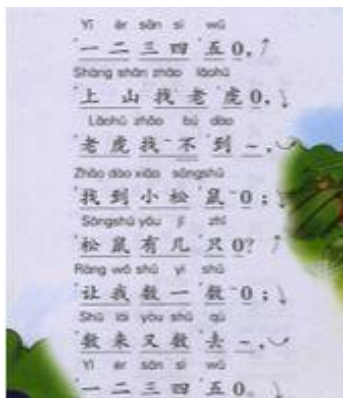 Yī èr sān sì wǔ
ˊ一 二 三 四 ˊ五 0, ↗
Shàng shān zhǎo lǎohǔ
ˊ上 山 找 ˊ老 ˊ虎 0, ↘
Lǎohǔ zhǎo bú dào
ˊ老 虎 找 – 不 ˊ到 ~,
Zhǎo dào xiǎo sōngshǔ
ˊ找 到 小 松 ˊ鼠 – 0 ; ↘
Sōngshǔ yǒu jǐ zhī
ˊ松 鼠 有 几 ˊ只 0? ↗
Ràng wǒ shǔ yi shǔ
ˊ让 我 数 一 ˊ数 – 0 ; ↘
Shǔ lái yòu shǔ qù
ˊ数 来 又 数 ˊ去 ~,
Yī èr sān sì wǔ
ˊ一 二 三 四 ˊ五 0。 ↘